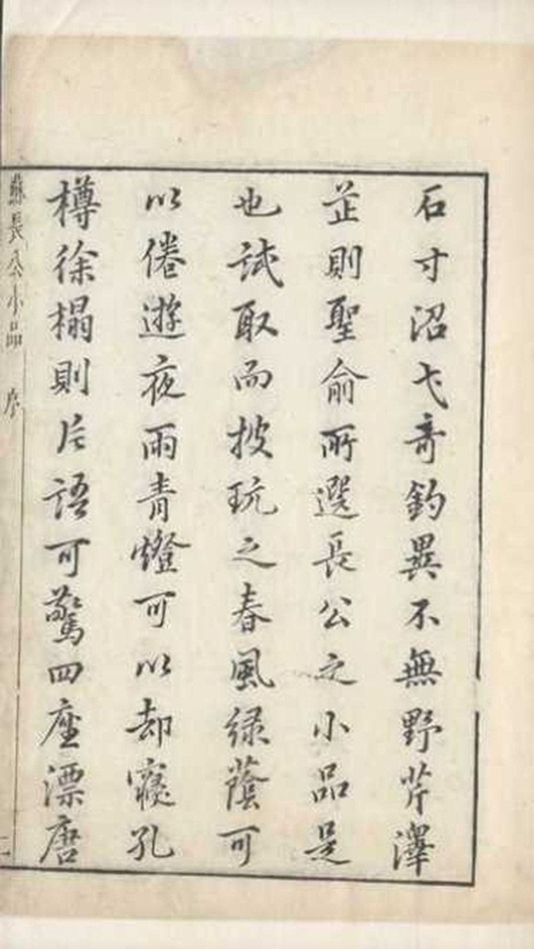 石寸沼弋奇釣異不無野芹澤
芷則聖俞所選長公之小品是
也試取而披玩之春風綠蔭可
以倦遊夜雨青燈可以却寢孔
樽徐榻則片語可驚四座漂唐
蘇長公小品 序 二